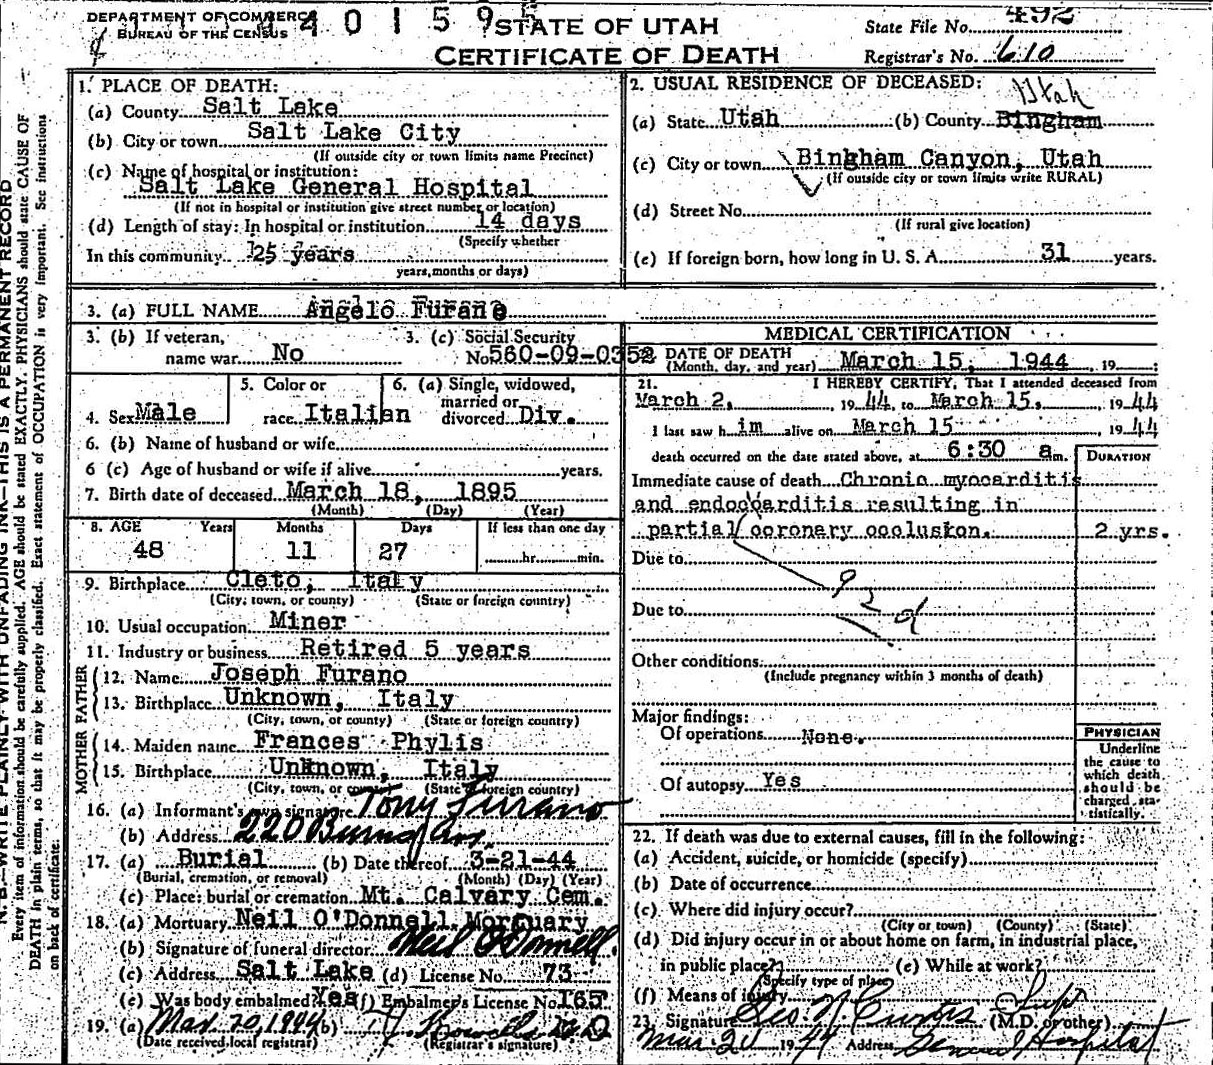 DEPARTMENT OF COMMERCE
BUREAU OF THE CENSUS
4 0 1 5 9 5
STATE OF UTAH
CERTIFICATE OF DEATH
State File No. 492
Registrar's No. 610
N. B.—WRITE PLAINLY WITH UNFADING INK—THIS IS A PERMANENT RECORD
Every item of information should be carefully supplied. AGE should be stated EXACTLY. PHYSICIANS should state CAUSE OF
DEATH in plain terms, so that it may be properly classified. Exact statement of OCCUPATION is very important. See instructions
on back of certificate.
1. PLACE OF DEATH:
(a) County Salt Lake
(b) City or town Salt Lake City
(If outside city or town limits name Precinct)
(c) Name of hospital or institution:
Salt Lake General Hospital
(If not in hospital or institution give street number or location)
(d) Length of stay: In hospital or institution 14 days
(Specify whether
In this community 25 years
years, months or days)
2. USUAL RESIDENCE OF DECEASED:
Utah
(a) State Utah (b) County Bingham
(c) City or town Bingham Canyon, Utah
(If outside city or town limits write RURAL)
(d) Street No.
(If rural give location)
(e) If foreign born, how long in U. S. A. 31 years.
3. (a) FULL NAME Angelo Furane
3. (b) If veteran, name war No
3. (c) Social Security No. 560-09-0352
4. Sex Male
5. Color or race Italian
6. (a) Single, widowed, married or divorced Div.
6. (b) Name of husband or wife
6 (c) Age of husband or wife if alive years.
7. Birth date of deceased March 18, 1895
(Month) (Day) (Year)
8. AGE Years Months Days If less than one day
48 11 27 hr. min.
9. Birthplace Cleto, Italy
(City, town, or county) (State or foreign country)
10. Usual occupation Miner
11. Industry or business Retired 5 years
FATHER
12. Name Joseph Furano
13. Birthplace Unknown, Italy
(City, town, or county) (State or foreign country)
MOTHER
14. Maiden name Frances Phylis
15. Birthplace Unknown, Italy
(City, town, or county) (State or foreign country)
16. (a) Informant's own signature Tony Furano
(b) Address 220
17. (a) Burial (b) Date thereof 3-21-44
(Burial, cremation, or removal) (Month) (Day) (Year)
(c) Place: burial or cremation Mt. Calvary Cem.
18. (a) Mortuary Neil O'Donnell Mortuary
(b) Signature of funeral director Neil O'Donnell
(c) Address Salt Lake (d) License No. 73
(e) Was body embalmed? Yes (f) Embalmer's License No. 165
19. (a) Mar 20, 1944 (b)
(Date received local registrar) (Registrar's signature)
MEDICAL CERTIFICATION
DATE OF DEATH
(Month, day, and year) March 15, 1944, 19
21. I HEREBY CERTIFY, That I attended deceased from
March 2, 1944, to March 15, 1944
I last saw him alive on March 15, 1944
death occurred on the date stated above, at 6:30 a m.
DURATION
Immediate cause of death Chronic myocarditis
and endocarditis resulting in
partial coronary occlusion. 2 yrs.
Due to
92d
Due to
Other conditions
(Include pregnancy within 3 months of death)
Major findings:
Of operations None.
Of autopsy Yes
PHYSICIAN
Underline
the cause to
which death
should be
charged sta-
tistically.
22. If death was due to external causes, fill in the following:
(a) Accident, suicide, or homicide (specify)
(b) Date of occurrence
(c) Where did injury occur?
(City or town) (County) (State)
(d) Did injury occur in or about home on farm, in industrial place,
in public place? (e) While at work?
(Specify type of place)
(f) Means of injury
23. Signature Geo. N. Curtis Supt (M.D. or other)
Mar. 20 1944 Address General Hospital